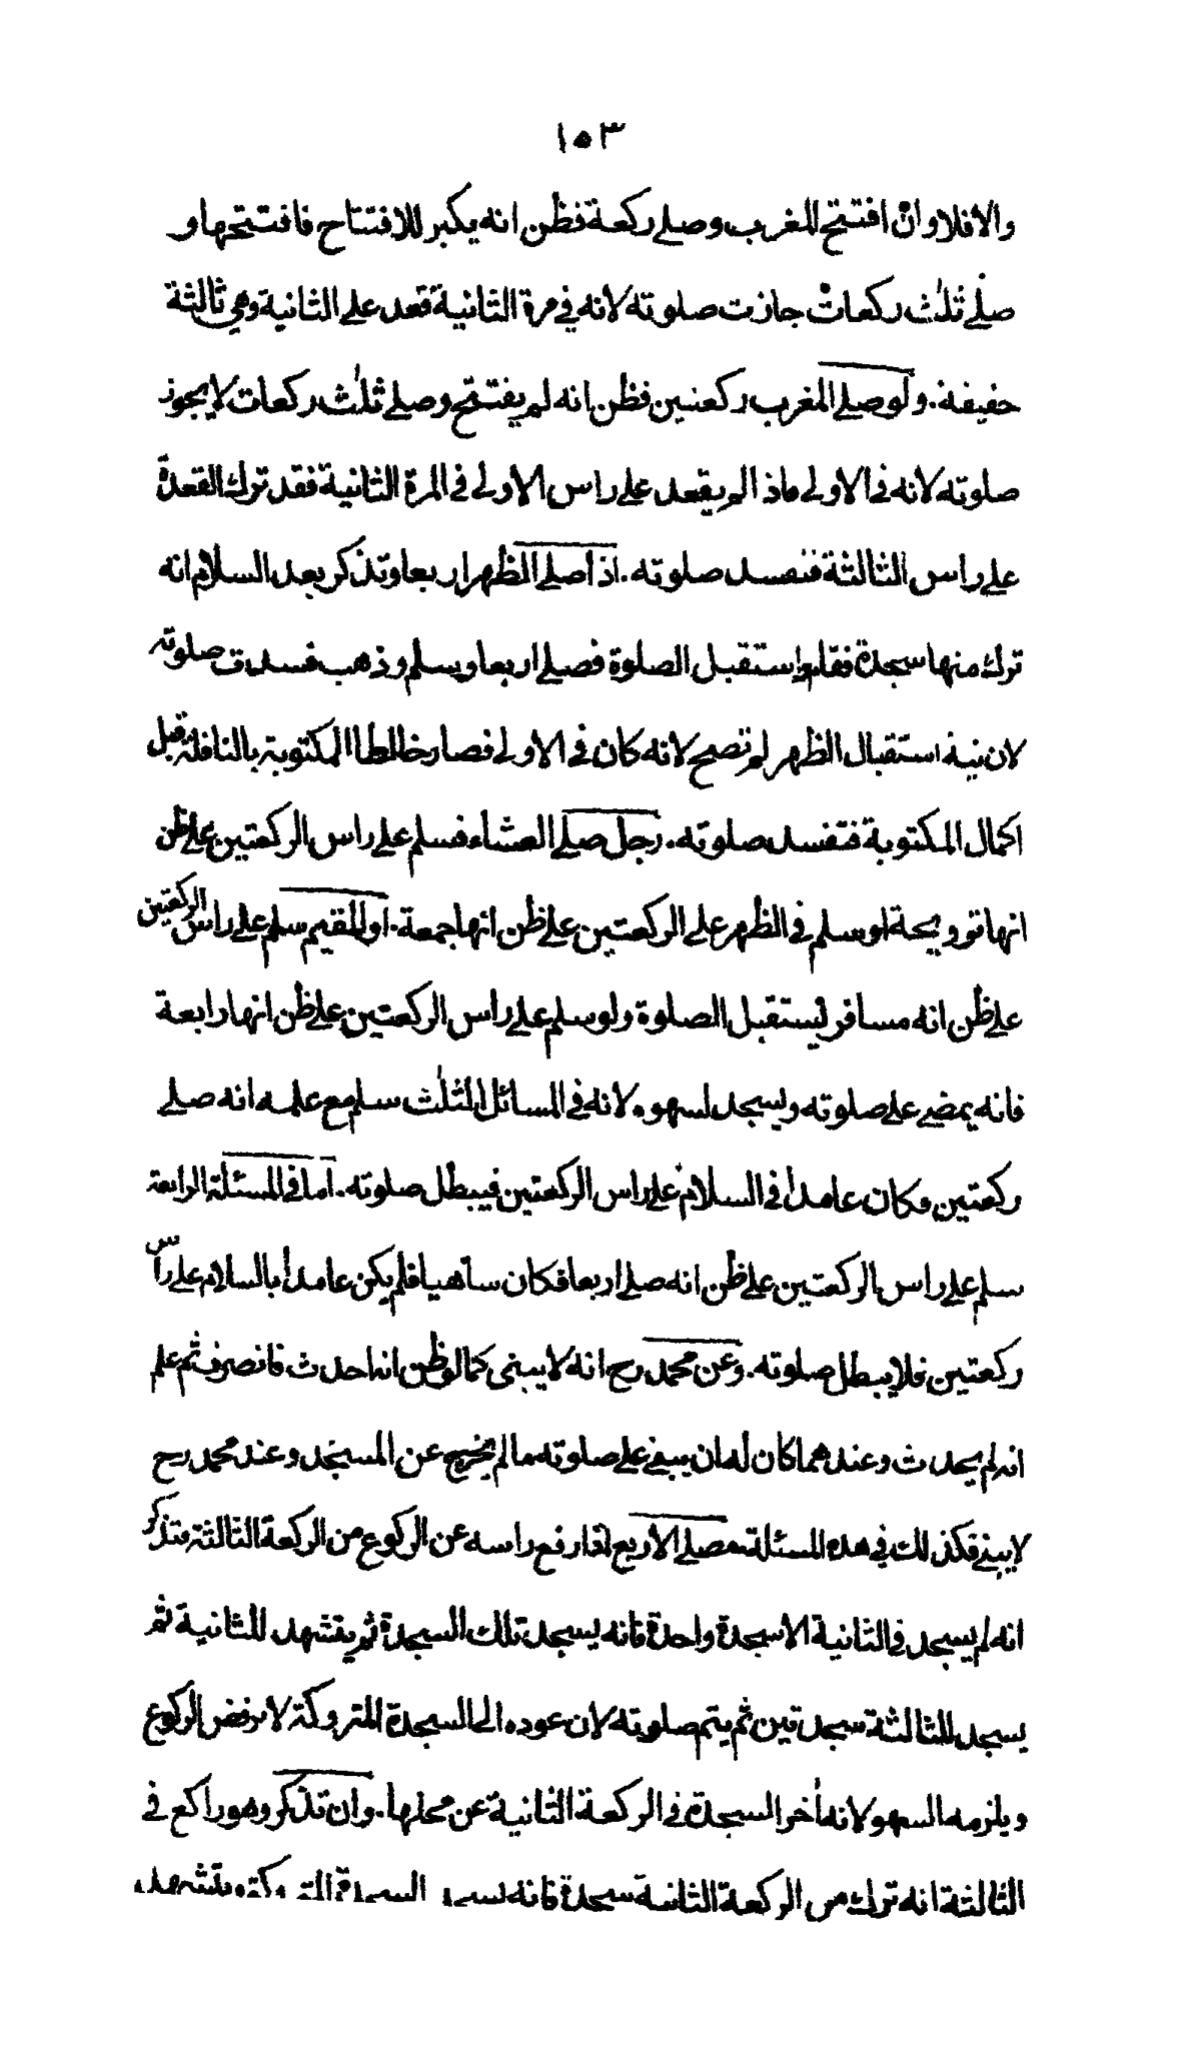 ١٥٣
والا فلا وان افتتح المغرب وصلے ركعة فظن انه يكبر للافتتاح فافتتحها و
صلے ثلٰث ركعات جازت صلوته لانه فے مرة الثانية قعد علے الثانية وهي ثالثة
حقيقة. ولو صلے المغرب ركعتين فظن انه لم يفتتح وصلے ثلٰث ركعات لا يجوز
صلوته لانه فے الاولے فاذا لم يقعد علے راس الاولے فے المرة الثانية فقد ترك القعدة
علے راس الثالثة فتفسد صلوته. اذا صلے الظهر اربعا وتذكر بعد السلام انه
ترك منها سجدة فقام واستقبل الصلوة فصلے اربعا ويسلم وذهب فسدت صلوته
لان نية استقبال الظهر لم تصح لانه كان فے الاولے فصار خالطا المكتوبة بالنافلة قبل
اكمال المكتوبة فتفسد صلوته. رجل صلے العشاء فسلم علے راس الركعتين علے ظن
انها ترويحة او سلم فے الظهر علے الركعتين علے ظن انها جمعة. او المقيم سلم علے راس الركعتين
علے ظن انه مسافر يستقبل الصلوة ولو سلم علے راس الركعتين علے ظن انها رابعة
فانه يمضے علے صلوته ويسجد لسهوه لانه فے المسائل الثلٰث سلم مع علمه انه صلے
ركعتين فكان عامدا فے السلام علے راس الركعتين فيبطل صلوته. اما فے المسئلة الرابعة
سلم علے راس الركعتين علے ظن انه صلے اربعا فكان ساهيا فلم يكن عامدا بالسلام علے راس
ركعتين فلا يبطل صلوته. وعن محمد رح انه لا يبنى كما لو ظن انه احدث فانصرف ثم علم
انه لم يحدث وعندهما كان له ان يبنے علے صلوته ما لم يخرج عن المسجد وعند محمد رح
لا يبنے فكذلك فے هذه المسئلة صلے الاربع لما رفع راسه عن الركوع من الركعة الثالثة وتذكر
انه لم يسجد فے الثانية الا سجدة واحدة فانه يسجد تلك السجدة ثم يتشهد للثانية ثم
يسجد للثالثة سجدتين ثم يتم صلوته لان عوده الى السجدة المتروكة لا يرفض الركوع
ويلزمه السهو لانه أخر السجدة فے الركعة الثانية عن محلها. وان تذكر وهو راكع فے
الثالثة انه ترك من الركعة الثانية سجدة فانه يسجد السجدة المتروكة ويتشهد